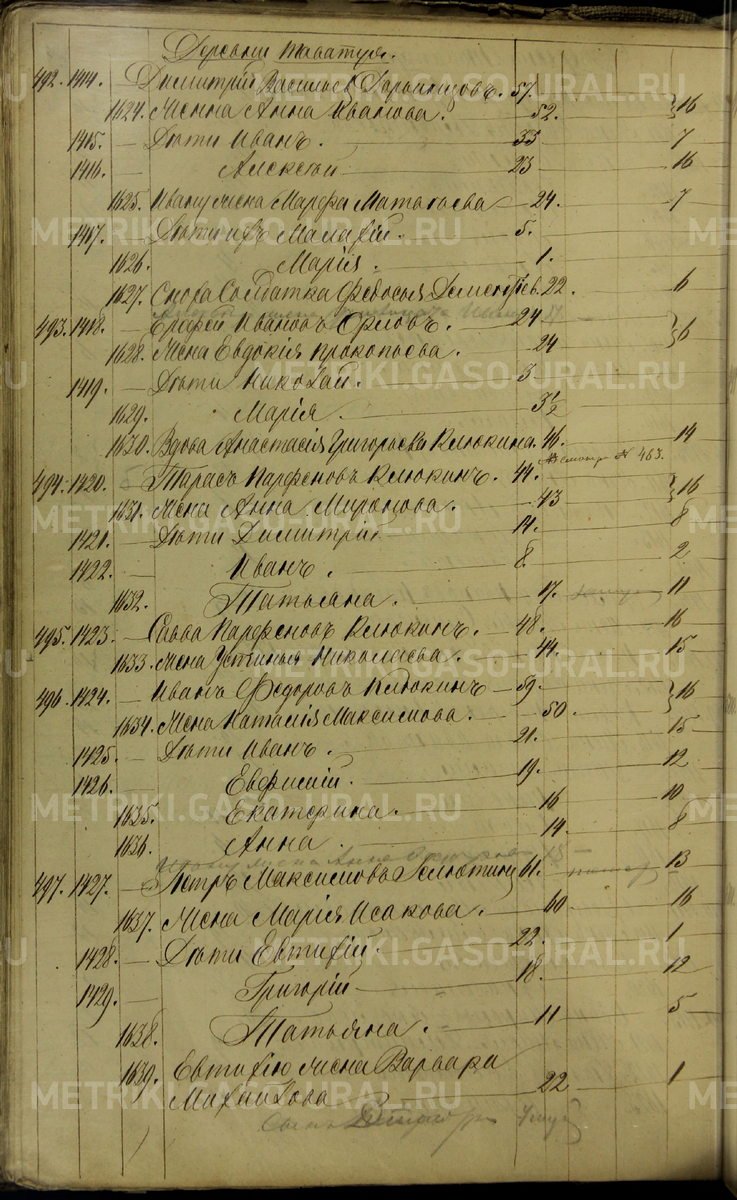 Деревни Таватуя.
492. 1414. — Димитрій Васильев. 57.
1624. Жена Анна Иванова. — 52. — } 16
1415. — Дѣти Иванъ. — 35 — 7
1416. — Алексѣй — 23 — 16
1625. Ивану жена Марфа — 24. — 7
1417. — Дѣти ихъ Малафій. — 5.
1626. Марія. — 1.
1627. Сноха Солдатка Федосья Дементьев. 22. — 6
493. 1418. — Ерофей Ивановъ Орловъ. — 24
1628. Жена Евдокія Прокопьева. — 24 } 6
1419. — Дѣти Николай. — 3
1629. Марія. — 3½
1630. Вдова Анастасія Григорьева Клюкина. 46. — 14
№ 463.
494. 1420. Тарасъ Парфеновъ Клюкинъ. 44.
1631. Жена Анна Миронова. — 43 } 16
1421. — Дѣти Димитрій — 14. — 8
1422. — Иванъ. — 8. — 2
1632. Татьяна. — 17. — 11
495. 1423. — Савва Парфеновъ Клюкинъ. — 48. — 16
1633. Жена Устинья Николаева. — 44. — 15
496. 1424. — Иванъ Федоровъ Клюкинъ — 59.
1634. Жена Наталія Максимова. — 50. } 16
1425. — Дѣти Иванъ. — 21. — 15
1426. Евфимій. — 19. — 12
1635. Екатерина. — 16 — 10
1636. Анна. — 14. — 8
жена Анна
497. 1427. — Петръ Максимовъ 61. — 13
1637. Жена Марія Исакова. — 60 — 16
1428. — Дѣти Евтифій — 22. — 1
1429. — Григорій — 18. — 12
1638. Татьяна. — 11 — 5
1639. Евтифію жена Варвара
Михайлова — 22 — 1
METRIKI.GASO-URAL.RU